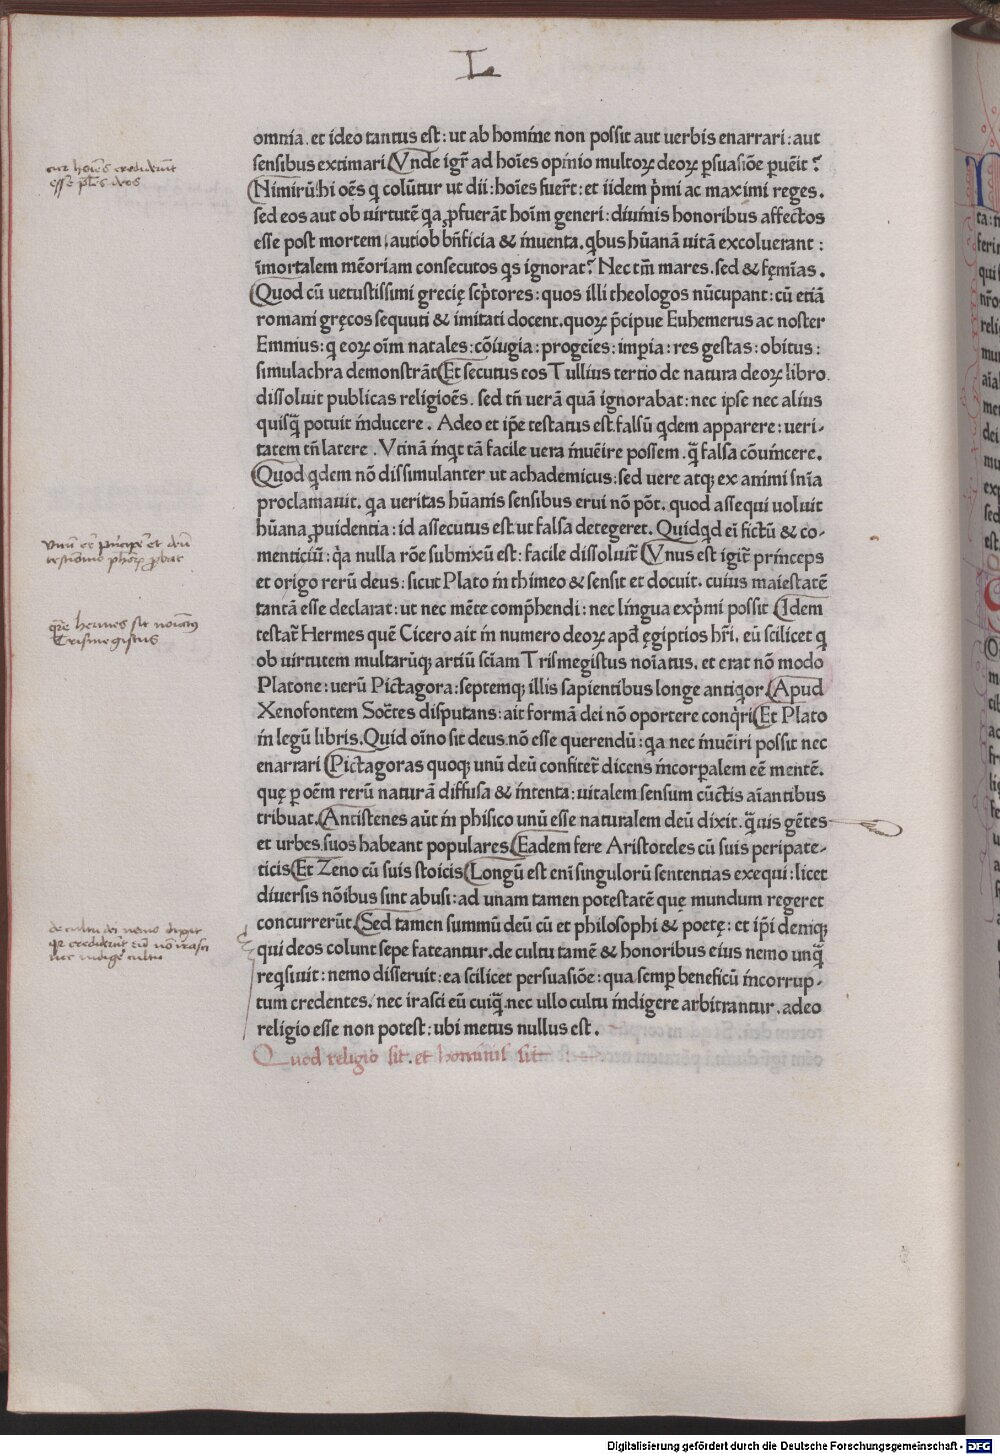 L
omnia. et ideo tantus est: ut ab homine non possit aut uerbis enarrari: aut
sensibus extimari. Vnde igr̃ ad hoīes opinio multoꝝ deoꝝ ꝑsuasiōe ꝑuēit?
Nimirū: hi oēs q̇ colūtur ut dii: hoīes fuer̃t: et iidem p̃mi ac maximi reges.
sed eos aut ob uirtutē qa ꝓfuerāt hoīm generi: diuinis honoribus affectos
esse post mortem, aut iob bñficia & inuenta. qbus hūanā uitā excoluerant:
īmortalem mēoriam consecutos q̇s ignorat? Nec tm̄ mares. sed & fęmīas.
Quod cū uetustissimi grecię scp̃tores: quos illi theologos nūcupant: cū etiā
romani gręcos sequuti & imitati docent. quoꝝ p̃cipue Euhemerus ac noster
Ennius: q̇ eoꝝ oīm natales: cōiugia: progeīes: imꝑia: res gestas: obitus:
simulachra demonstrāt. Et secutus eos Tullius tertio de natura deoꝝ libro.
dissoluit publicas religioēs. sed tñ uerā quā ignorabat: nec ipse nec alius
quisq̄ potuit inducere. Adeo et ip̄e testatus est falsū qdem apparere: ueri-
tatem tñ latere. Vtinā inq̇t tā facile uera inuēire possem. q̄ falsa cōuincere.
Quod qdem nō dissimulanter ut achademicus: sed uere atqꝫ ex animi snīa
proclamauit. qa ueritas hūanis sensibus erui nō pōt. quod assequi uoluit
hūana ꝓuidentia: id assecutus est ut falsa detegeret. Quidqd ei fictū & co-
menticiū: q̇a nulla rōe submixū est: facile dissoluit̃. Vnus est igit̃ princeps
et origo rerū deus: sicut Plato in thimeo & sensit et docuit. cuius maiestatē
tantā esse declarat: ut nec mēte comp̃hendi: nec lingua exp̃mi possit. Idem
testat̃ Hermes quē Cicero ait in numero deoꝝ apđ ęgiptios hr̄i. eū scilicet q̇
ob uirtutem multarūqꝫ artiū sciam Trismegistus noīatus. et erat nō modo
Platone: uerū Pictagora: septemqꝫ illis sapientibus longe antiq̇or. Apud
Xenofontem Soctes disputans: ait formā dei nō oportere conq̇ri. Et Plato
in legū libris. Quid oīno sit deus nō esse querendū: qa nec inuēiri possit nec
enarrari. Pictagoras quoqꝫ unū deū confitet̃ dicens incorꝑalem eē mentē.
quę ꝑ oēm rerū naturā diffusa & intenta: uitalem sensum cūctis aīantibus
tribuat. Antistenes aūt in phisico unū esse naturalem deū dixit. q̄uis gētes
et urbes suos habeant populares. Eadem fere Aristoteles cū suis peripate-
ticis. Et Zeno cū suis stoicis. Longū est enī singulorū sententias exequi: licet
diuersis nōibus sint abusi: ad unam tamen potestatē quę mundum regeret
concurrerūt. Sed tamen summū deū cū et philosophi & poetę: et ip̄i deniqꝫ
qui deos colunt sepe fateantur. de cultu tamē & honoribus eius nemo unq̄
req̇siuit: nemo disseruit: ea scilicet persuasiōe: qua semꝑ beneficū incorrup-
tum credentes. nec irasci eū cuiq̄. nec ullo cultu indigere arbitrantur. adeo
religio esse non potest: ubi metus nullus est.
Quod religio sit. et hominis sit
cur hoīes crediderunt
esse pl̄es deos
Vnū ee principē et deū
testīonio ph̄orꝝ probat
quare hermes sit noīatus
Trismegistus
de cultu dei nemo dixit
qa crediderūt eū nō irasci
nec indigere cultu
Digitalisierung gefördert durch die Deutsche Forschungsgemeinschaft - DFG